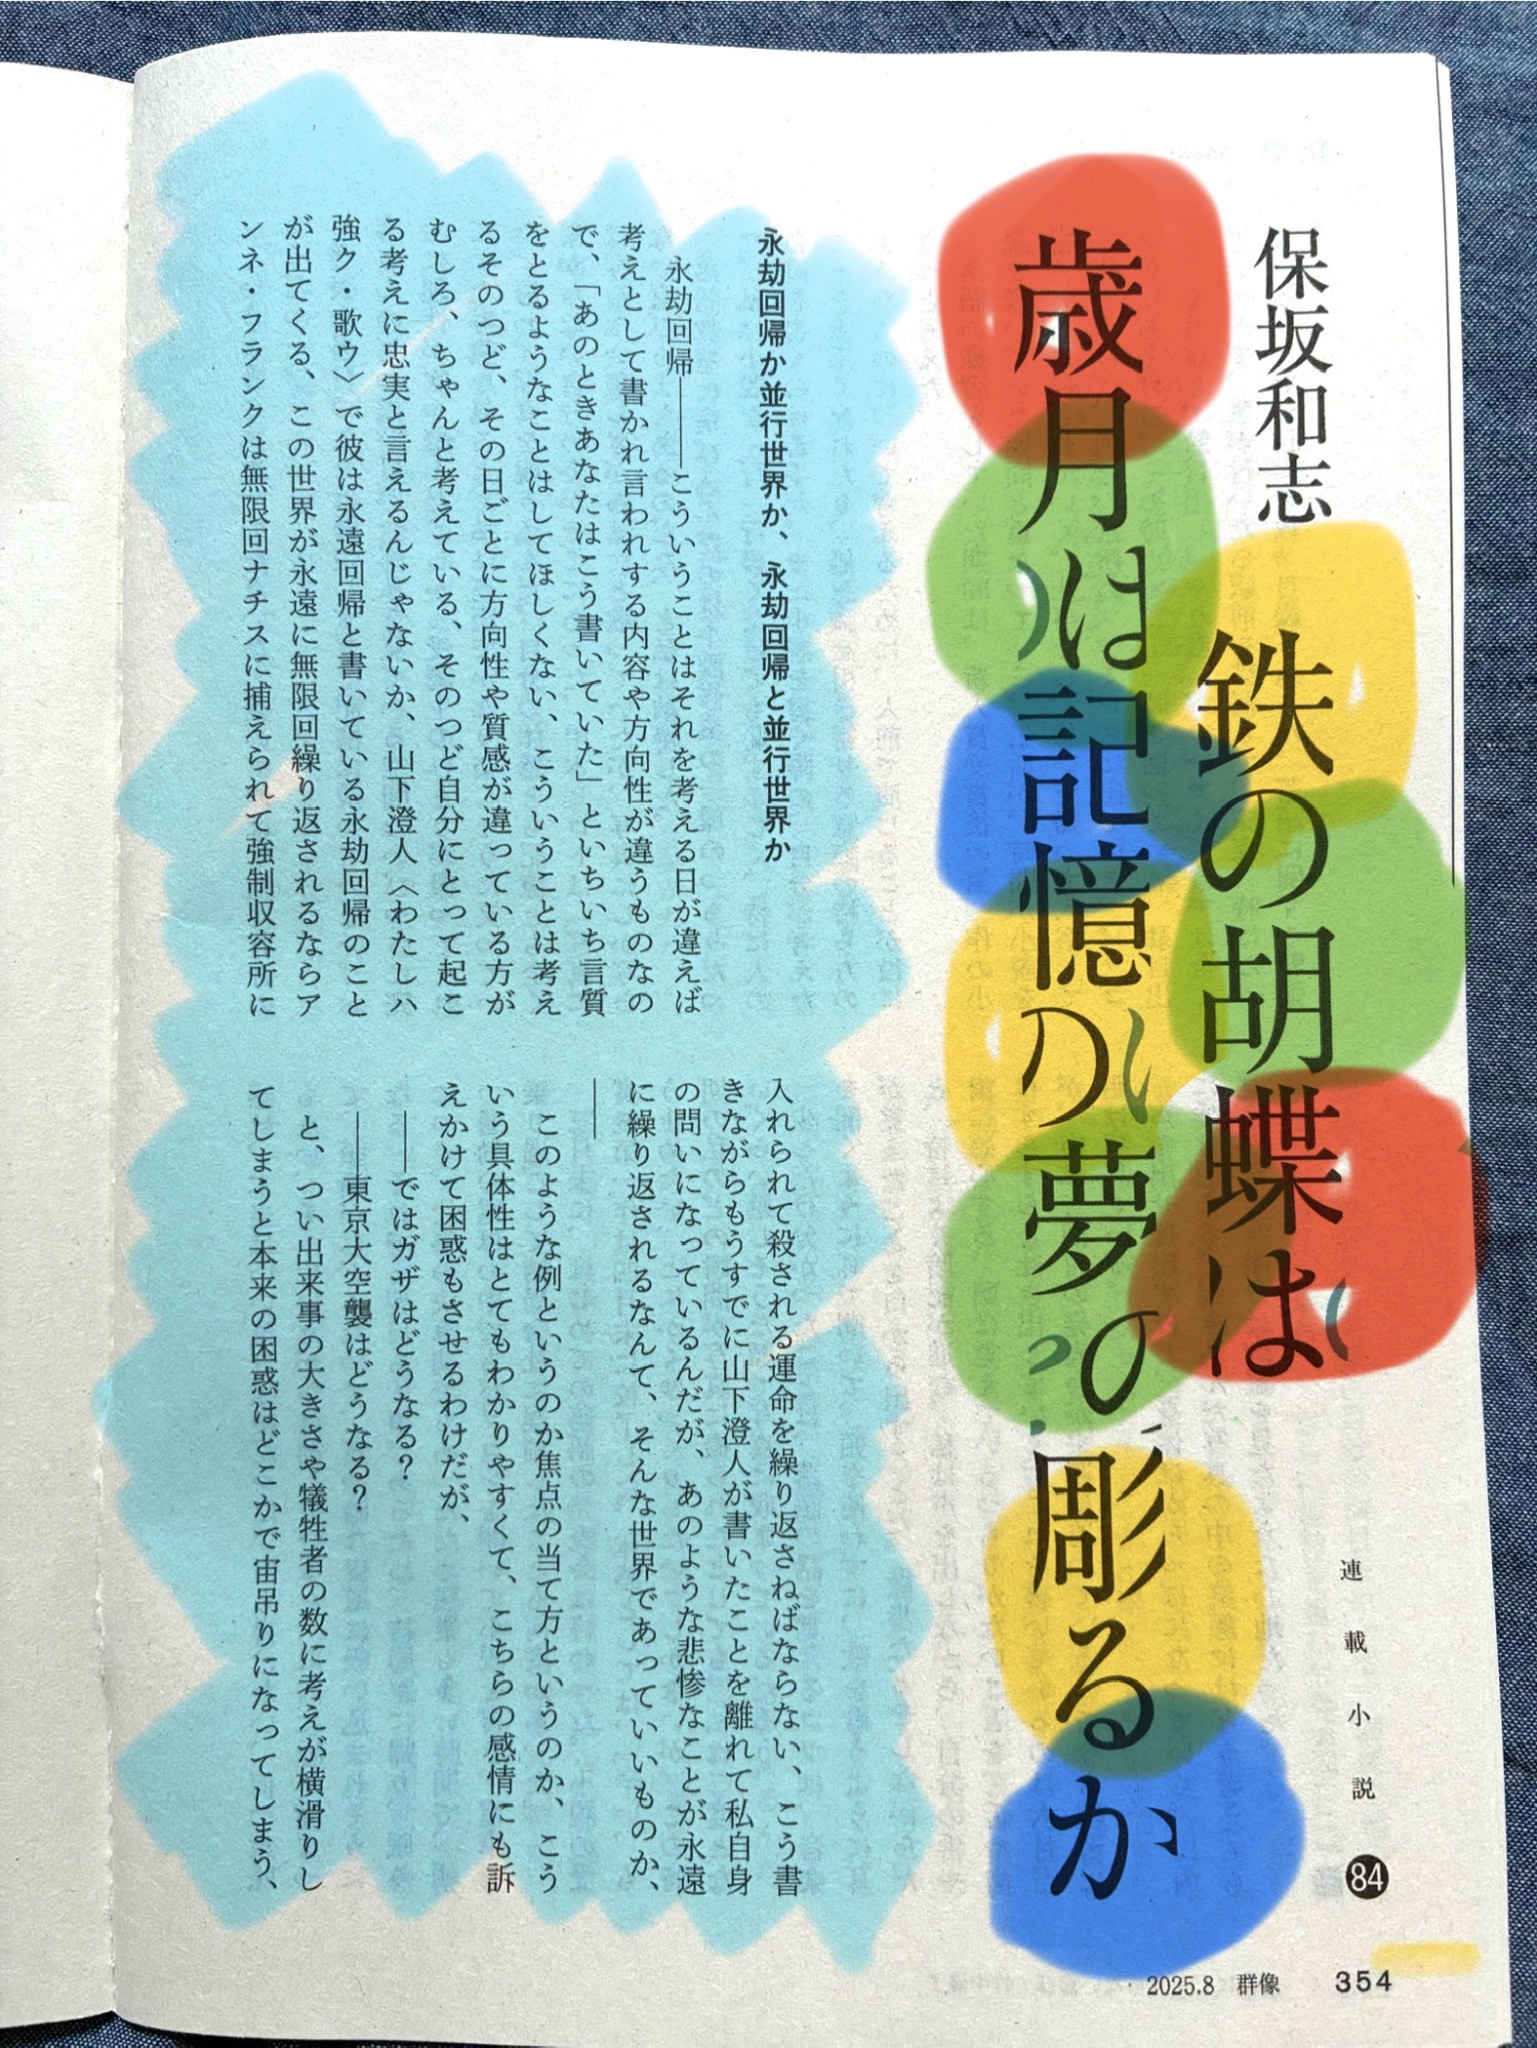 保坂和志
鉄の胡蝶は
歳月は記憶の夢の彫るか
連載小説84
永劫回帰か並行世界か、永劫回帰と並行世界か
永劫回帰――こういうことはそれを考える日が違えば
考えとして書かれ言われする内容や方向性が違うものなの
で、「あのときあなたはこう書いていた」といちいち言質
をとるようなことはしてほしくない、こういうことは考え
るそのつど、その日ごとに方向性や質感が違っている方が
むしろ、ちゃんと考えている、そのつど自分にとって起こ
る考えに忠実と言えるんじゃないか、山下澄人〈わたしハ
強ク・歌ウ〉で彼は永遠回帰と書いている永劫回帰のこと
が出てくる、この世界が永遠に無限回繰り返されるならア
ンネ・フランクは無限回ナチスに捕えられて強制収容所に
入れられて殺される運命を繰り返さねばならない、こう書
きながらもうすでに山下澄人が書いたことを離れて私自身
の問いになっているんだが、あのような悲惨なことが永遠
に繰り返されるなんて、そんな世界であっていいものか、
――
このような例というのか焦点の当て方というのか、こう
いう具体性はとてもわかりやすくて、こちらの感情にも訴
えかけて困惑もさせるわけだが、
――ではガザはどうなる？
――東京大空襲はどうなる？
と、つい出来事の大きさや犠牲者の数に考えが横滑りし
てしまうと本来の困惑はどこかで宙吊りになってしまう、
2025.8 群像 354